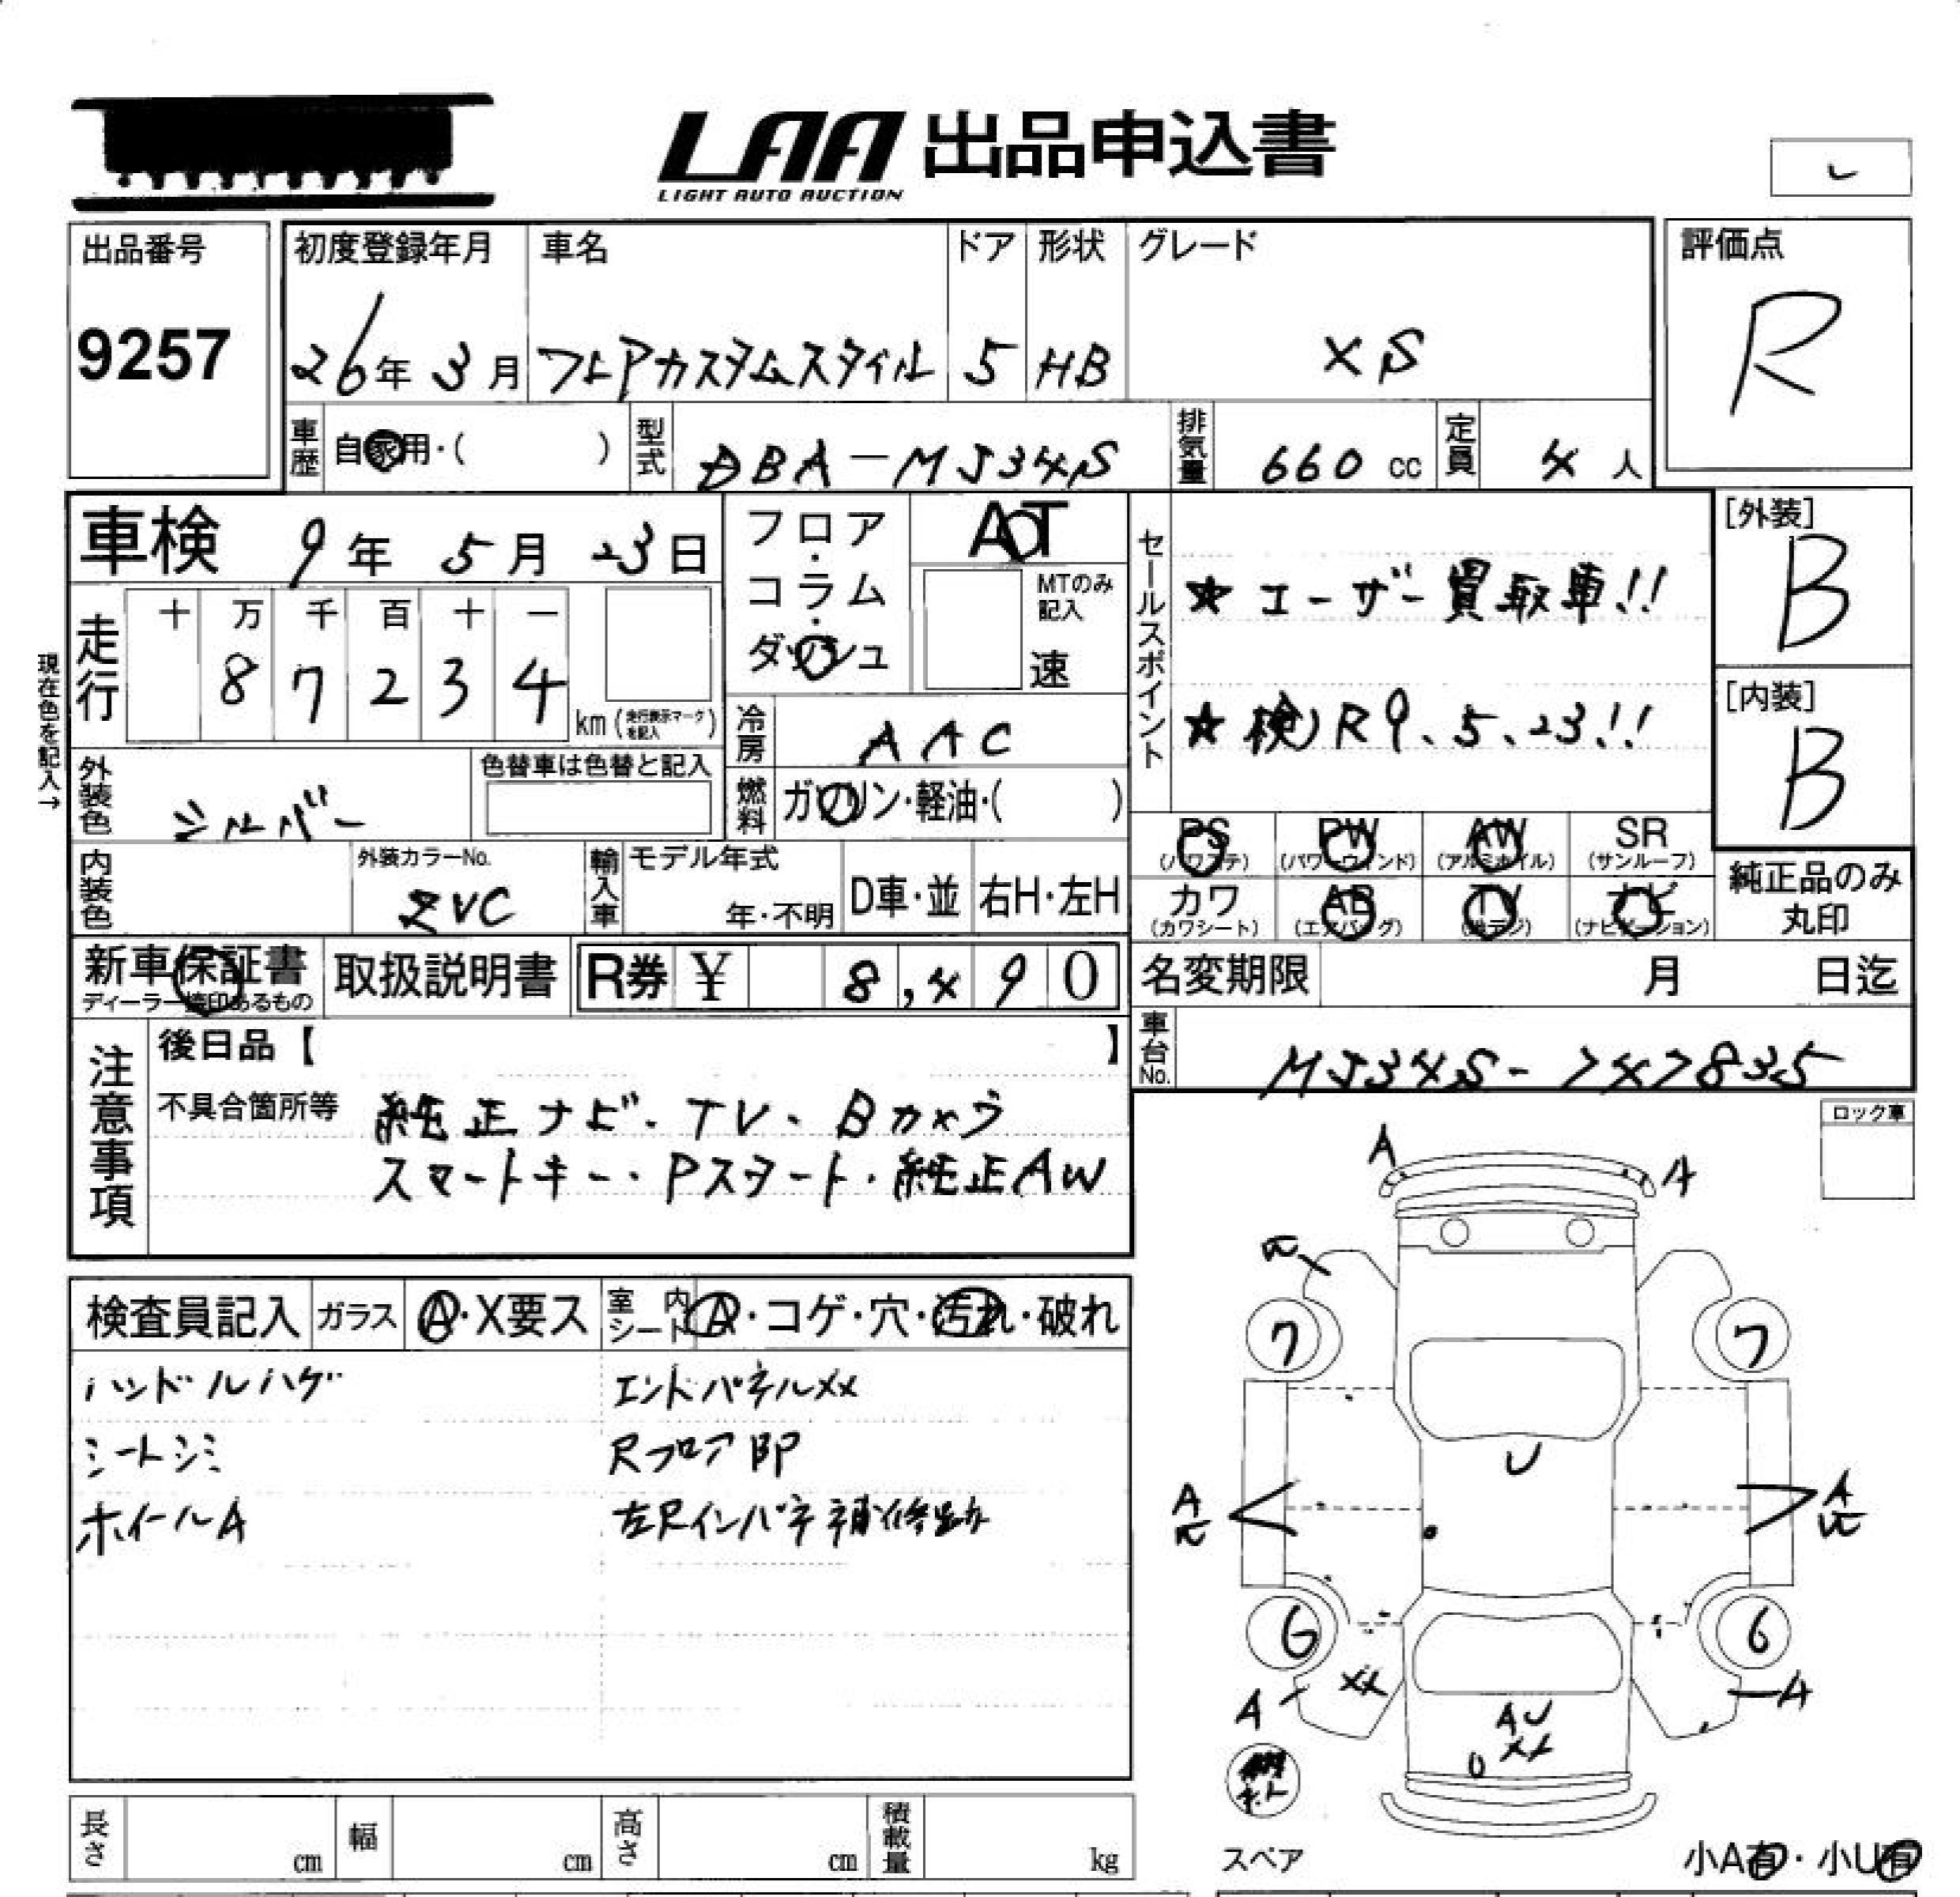 LAA 出品申込書
LIGHT AUTO AUCTION
し
出品番号
9257
初度登録年月
26年 3月
車名
フレアカスタムスタイル
ドア
5
形状
HB
グレード
XS
評価点
R
車歴 自家用・( )
型式 DBA-MJ34S
排気量 660 cc
定員 4 人
車検 9年 5月 23日
フロア・コラム・ダッシュ
AT
MTのみ記入
速
セールスポイント
★ユーザー買取車!!
★検)R9、5、23!!
[外装]
B
[内装]
B
現在色を記入→
走行
十 万 千 百 十 一
8 7 2 3 4
km (走行表示マークを記入)
冷房 AAC
燃料 ガソリン・軽油・( )
外装色 シルバー
色替車は色替と記入
内装色
外装カラーNo.
ZVC
輸入車
モデル年式
年・不明
D車・並
右H・左H
PS (パワステ)
PW (パワーウィンド)
AW (アルミホイル)
SR (サンルーフ)
カワ (カワシート)
AB (エアバッグ)
TV (地デジ)
ナビ (ナビゲーション)
純正品のみ
丸印
新車保証書
ディーラー捺印あるもの
取扱説明書
R券 ¥ 8,490
名変期限 月 日迄
車台No.
注意事項
後日品【 】
不具合箇所等
純正ナビ・TV・Bカメラ
スマートキー・Pスタート・純正AW
ロック車
検査員記入
ガラス A・X要ス
室内シート A・コゲ・穴・汚れ・破れ
ハンドルハゲ
シートシミ
ホイールA
エンドパネルXX
Rフロア凹P
左Rインパネ補修跡
A
A
7
7
U
A
A
6
6
XX
A
A
AU
XX
U
スペア
小A有・小U有
長さ cm
幅 cm
高さ cm
積載量 kg